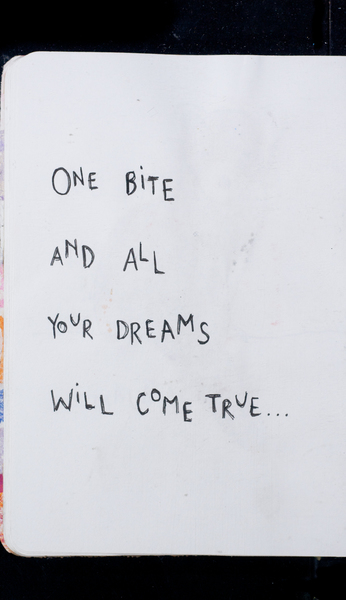 ONE BiTE
AND ALL
YOUR DREAMS
WiLL COME TRUE...